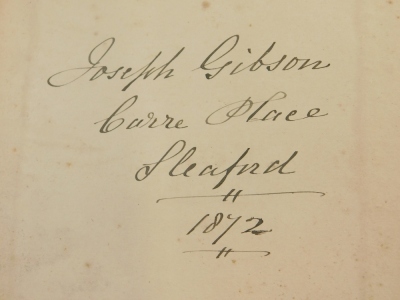 Joseph Gibson
Carre Place
Sleaford
1872